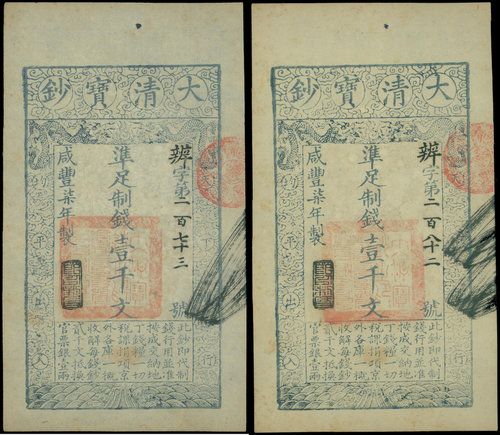 大清寶鈔
辨字第二百七十三號
準足制錢壹千文
咸豐柒年製
此鈔即代制
錢行用並准
按成交納地
丁錢糧一切
稅課捐項京
外各庫一概
收解每錢鈔
貳千文抵換
官票銀壹兩
大清寶鈔
辨字第二百八十二號
準足制錢壹千文
咸豐柒年製
此鈔即代制
錢行用並准
按成交納地
丁錢糧一切
稅課捐項京
外各庫一概
收解每錢鈔
貳千文抵換
官票銀壹兩